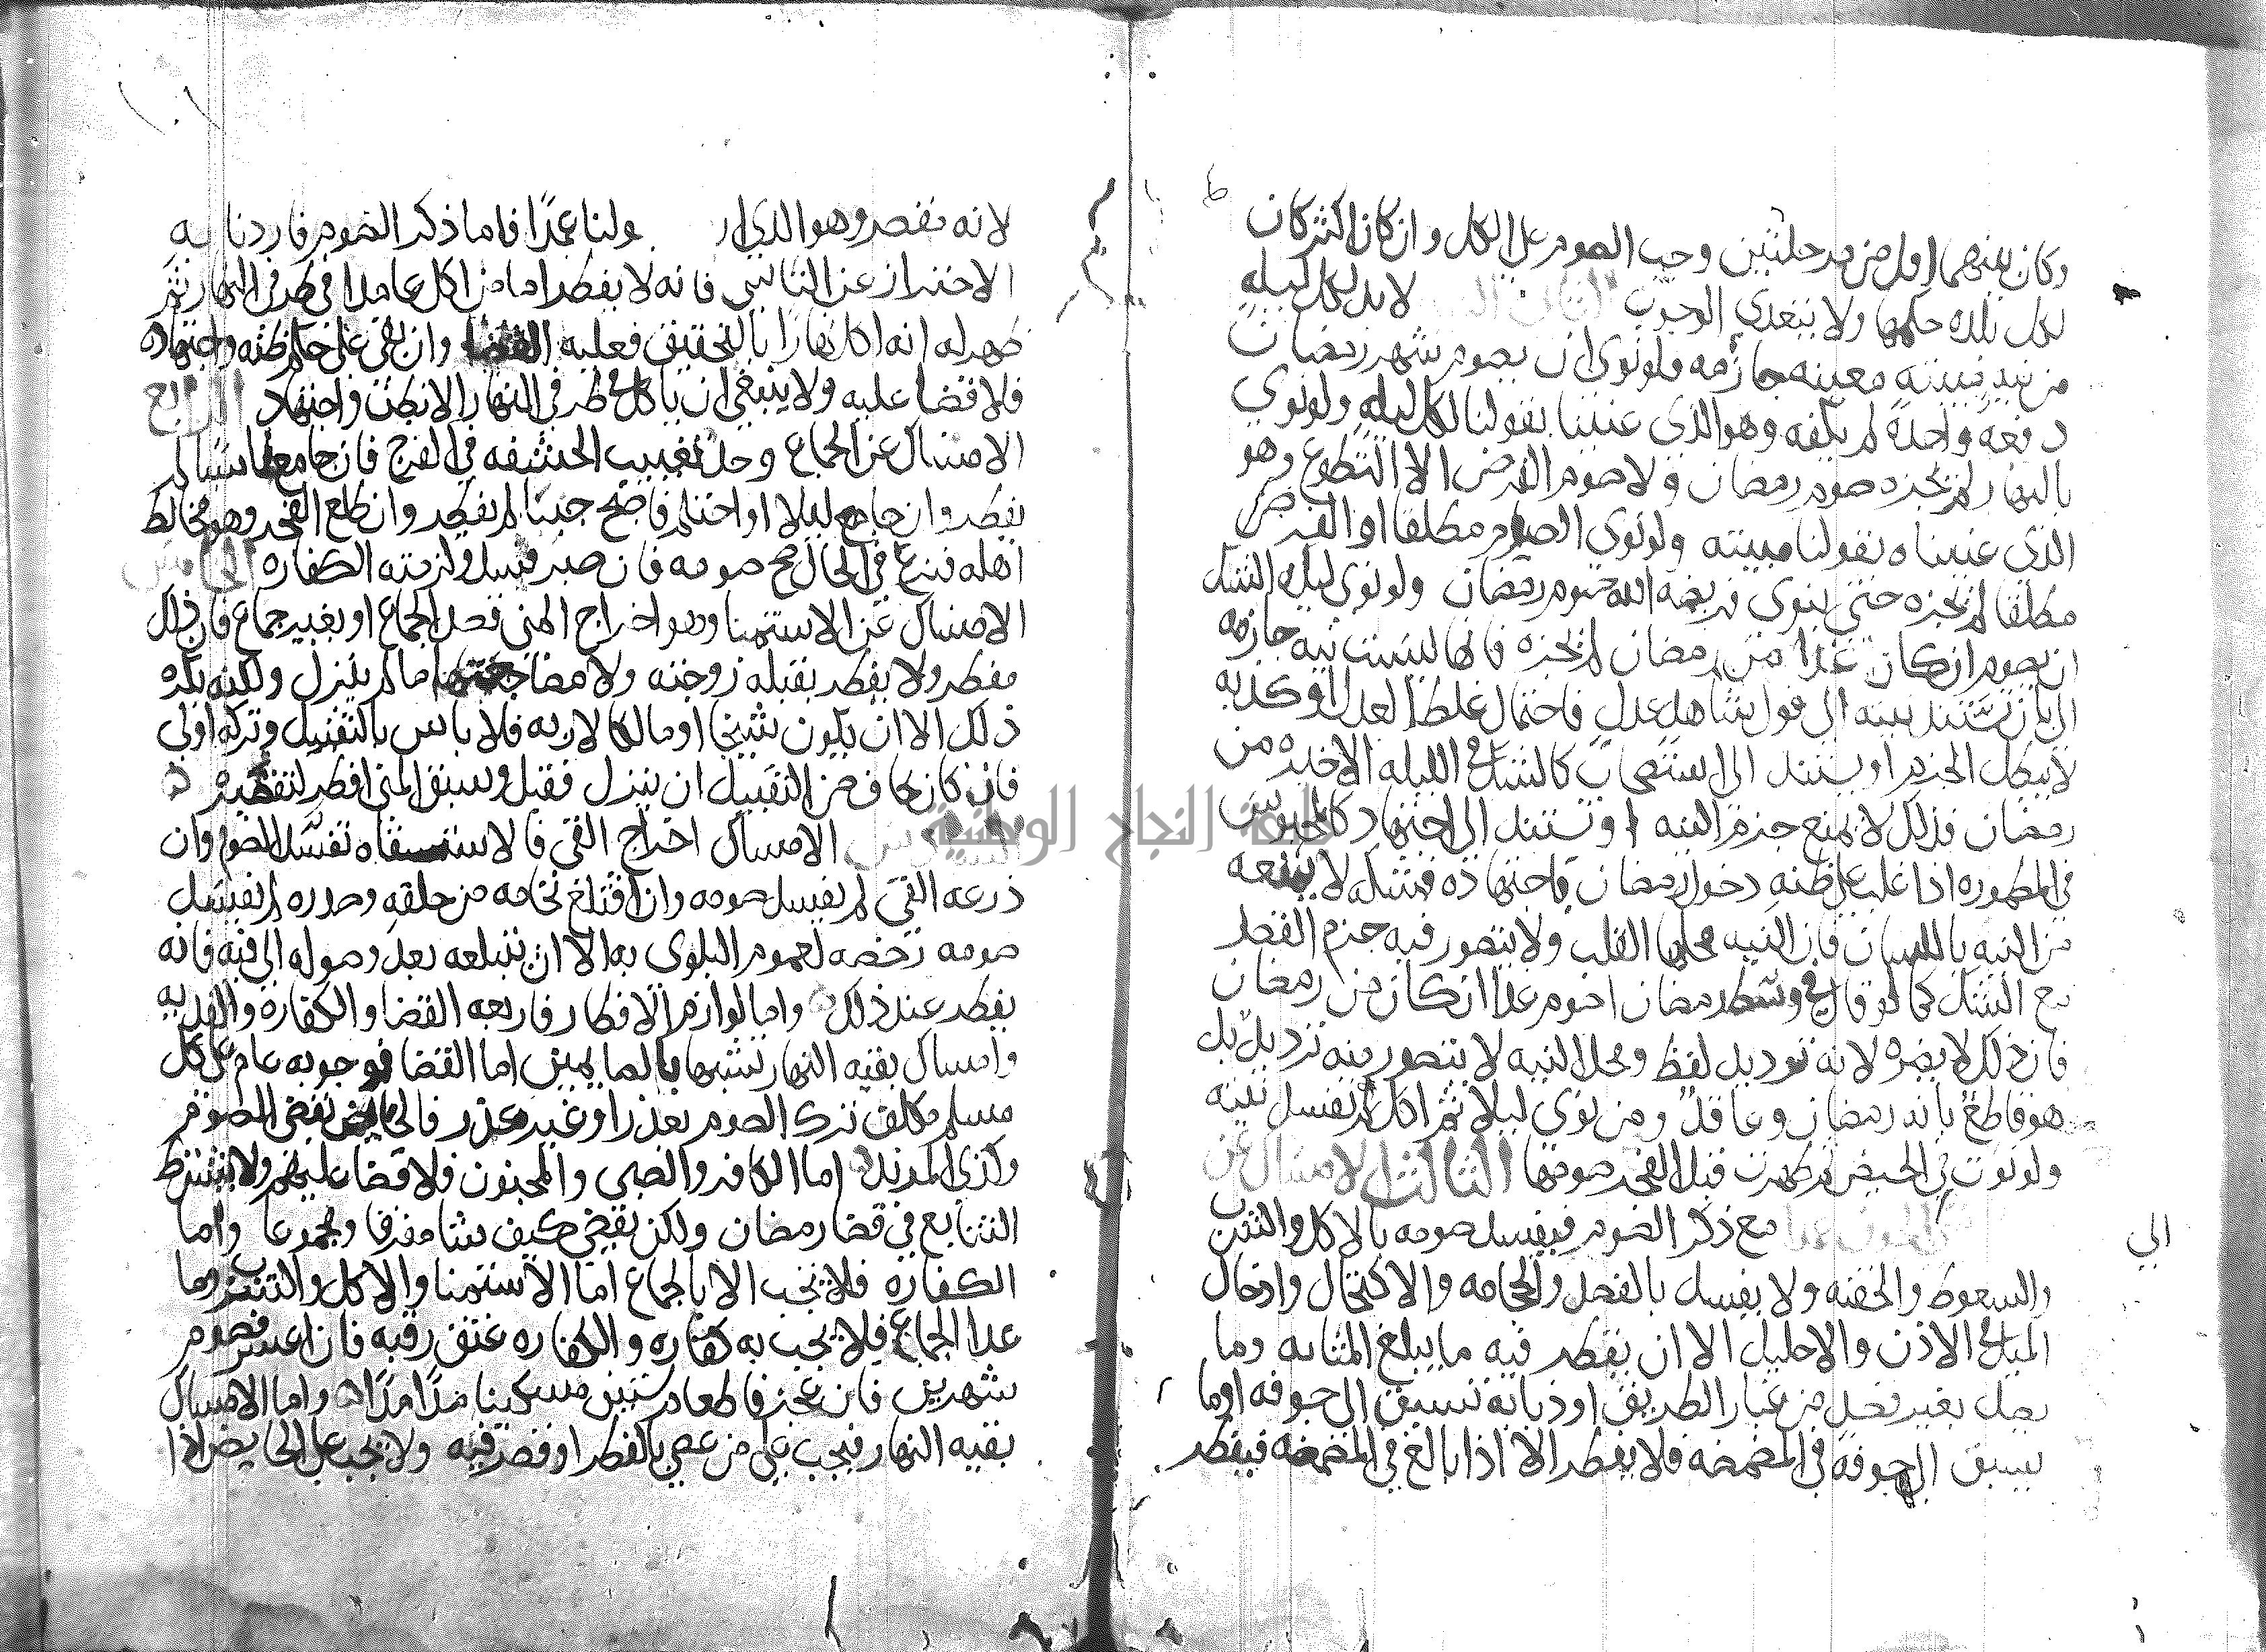 وكان بينهما اقل من مرحلتين وجب الصوم على الكل وان كان اكثر كان
لكل بلده حكمها ولا يتعدى الوجوب الثاني لا بد لكل ليله
من نيه مبيته معينه جازمه فلو نوى ان يصوم شهر رمضان
دفعه واحدة لم يكفه وهو الذي عنينا بقولنا لكل ليله ولو نوى
بالنهار لم يجزه صوم رمضان ولا صوم الفرض الا التطوع وهو
الذي عنيناه بقولنا مبيته ولو نوى الصوم مطلقا او الفرض
مطلقا لم يجزه حتى ينوى فريضه الله صوم رمضان ولو نوى ليله الشك
ان يصوم ان كان غدا من رمضان لم يجزه فانها ليست نيه جازمه
الا بان تستند نيته الى قول شاهد عدل فاحتمال غلط العدل او كذبه
لا يبطل الجزم او يستند الى استصحاب كالشك في الليله الاخيره من
رمضان فذلك لا يمنع جزم النيه او تستند الى اجتهاد كالمحبوس
في المطموره اذا غلب على ظنه دخول رمضان باجتهاده فشكه لا يمنعه
من النيه باللسان فان النيه محلها القلب ولا يتصور فيه جزم القصد
مع الشك كما لو قال في وسط رمضان اصوم غدا ان كان من رمضان
فان ذلك لا يضره لانه ترديد لفظ ومحل النيه لا يتصور فيه تردد بل
هو قاطع بانه رمضان ومن نوى ليلا ثم اكل لم تفسد نيته
ولو نوت في الحيض ثم طهرت قبل الفجر صح صومها الثالث الامساك عن
مع ذكر الصوم فيفسد صومه بالاكل والشرب
الى
والسعوط والحقنه ولا يفسد بالفصد والحجامه والاكتحال وادخال
الميل في الاذن والاحليل الا ان يقطر فيه ما يبلغ المثانه وما
يصل بغير قصد من غبار الطريق او ذبابة تسبق الى جوفه او ما
يسبق الى جوفه في المضمضه فلا يفطر الا اذا بالغ في المضمضه فيفطر
لانه مقصر وهو الذي ار ولنا عمدًا فاما ذكر الصوم فاردنا به
الاحتراز عن الناسي فانه لا يفطر اما من اكل عامدا في طرفي النهار ثم
ظهر له انه اكل نهارا بالتحقيق فعليه القضا وان بقى على حكم ظنه واجتهاده
فلا قضا عليه ولا ينبغي ان ياكل في طرفي النهار الا بظن واجتهاد الرابع
الامساك عن الجماع وحده تغييب الحشفه في الفرج فان جامع ناسيا لم
يفطر وان جامع ليلا او احتلم فاصبح جنبا لم يفطر وان طلع الفجر وهو مخالط
اهله فنزع في الحال صح صومه فان صبر فسد ولزمته الكفاره الخامس
الامساك عن الاستمنا وهو اخراج المني قصد الجماع او بغير جماع فان ذلك
مفطر ولا يفطر بقبله زوجته ولا مضاجعتها ما لم ينزل ولكنه يكره
ذلك الا ان يكون شيخا او مالكا لاربه فلا باس بالتقبيل وتركه اولى
فان كان يخاف من التقبيل ان ينزل فقبل وسبق المني افطر لتقصيره
السادس الامساك اخراج القى فالاستقاه تفسد الصوم وان
ذرعه القى لم يفسد صومه وان اقتلع نخامه من حلقه وصدره لم يفسد
صومه رخصه لعموم البلوى به الا ان يبتلعه بعد وصوله الى فيه فانه
يفطر عند ذلك واما لوازم الافطار فاربعه القضا والكفاره والفديه
وامساك بقيه النهار تشبها بالصايمين اما القضا فوجوبه عام على كل
مسلم مكلف ترك الصوم بعذر او غير عذر فالحايض تقضى الصوم
وكذى المرتد اما الكافر والصبي والمجنون فلا قضا عليهم ولا يشترط
التتابع في قضا رمضان ولكن يقضي كيف شا مفرقا ومجموعا واما
الكفاره فلا تجب الا بالجماع اما الاستمنا والاكل والشرب وما
عدا الجماع فلا يجب به كفاره والكفاره عتق رقبه فان اعسر فصوم
شهرين فان عجز فاطعام ستين مسكينا مدًا مدًا واما الامساك
بقيه النهار فيجب على من عصى بالفطر او قصر فيه ولا يجب على الحايض اذا
جامعة النجاح الوطنية